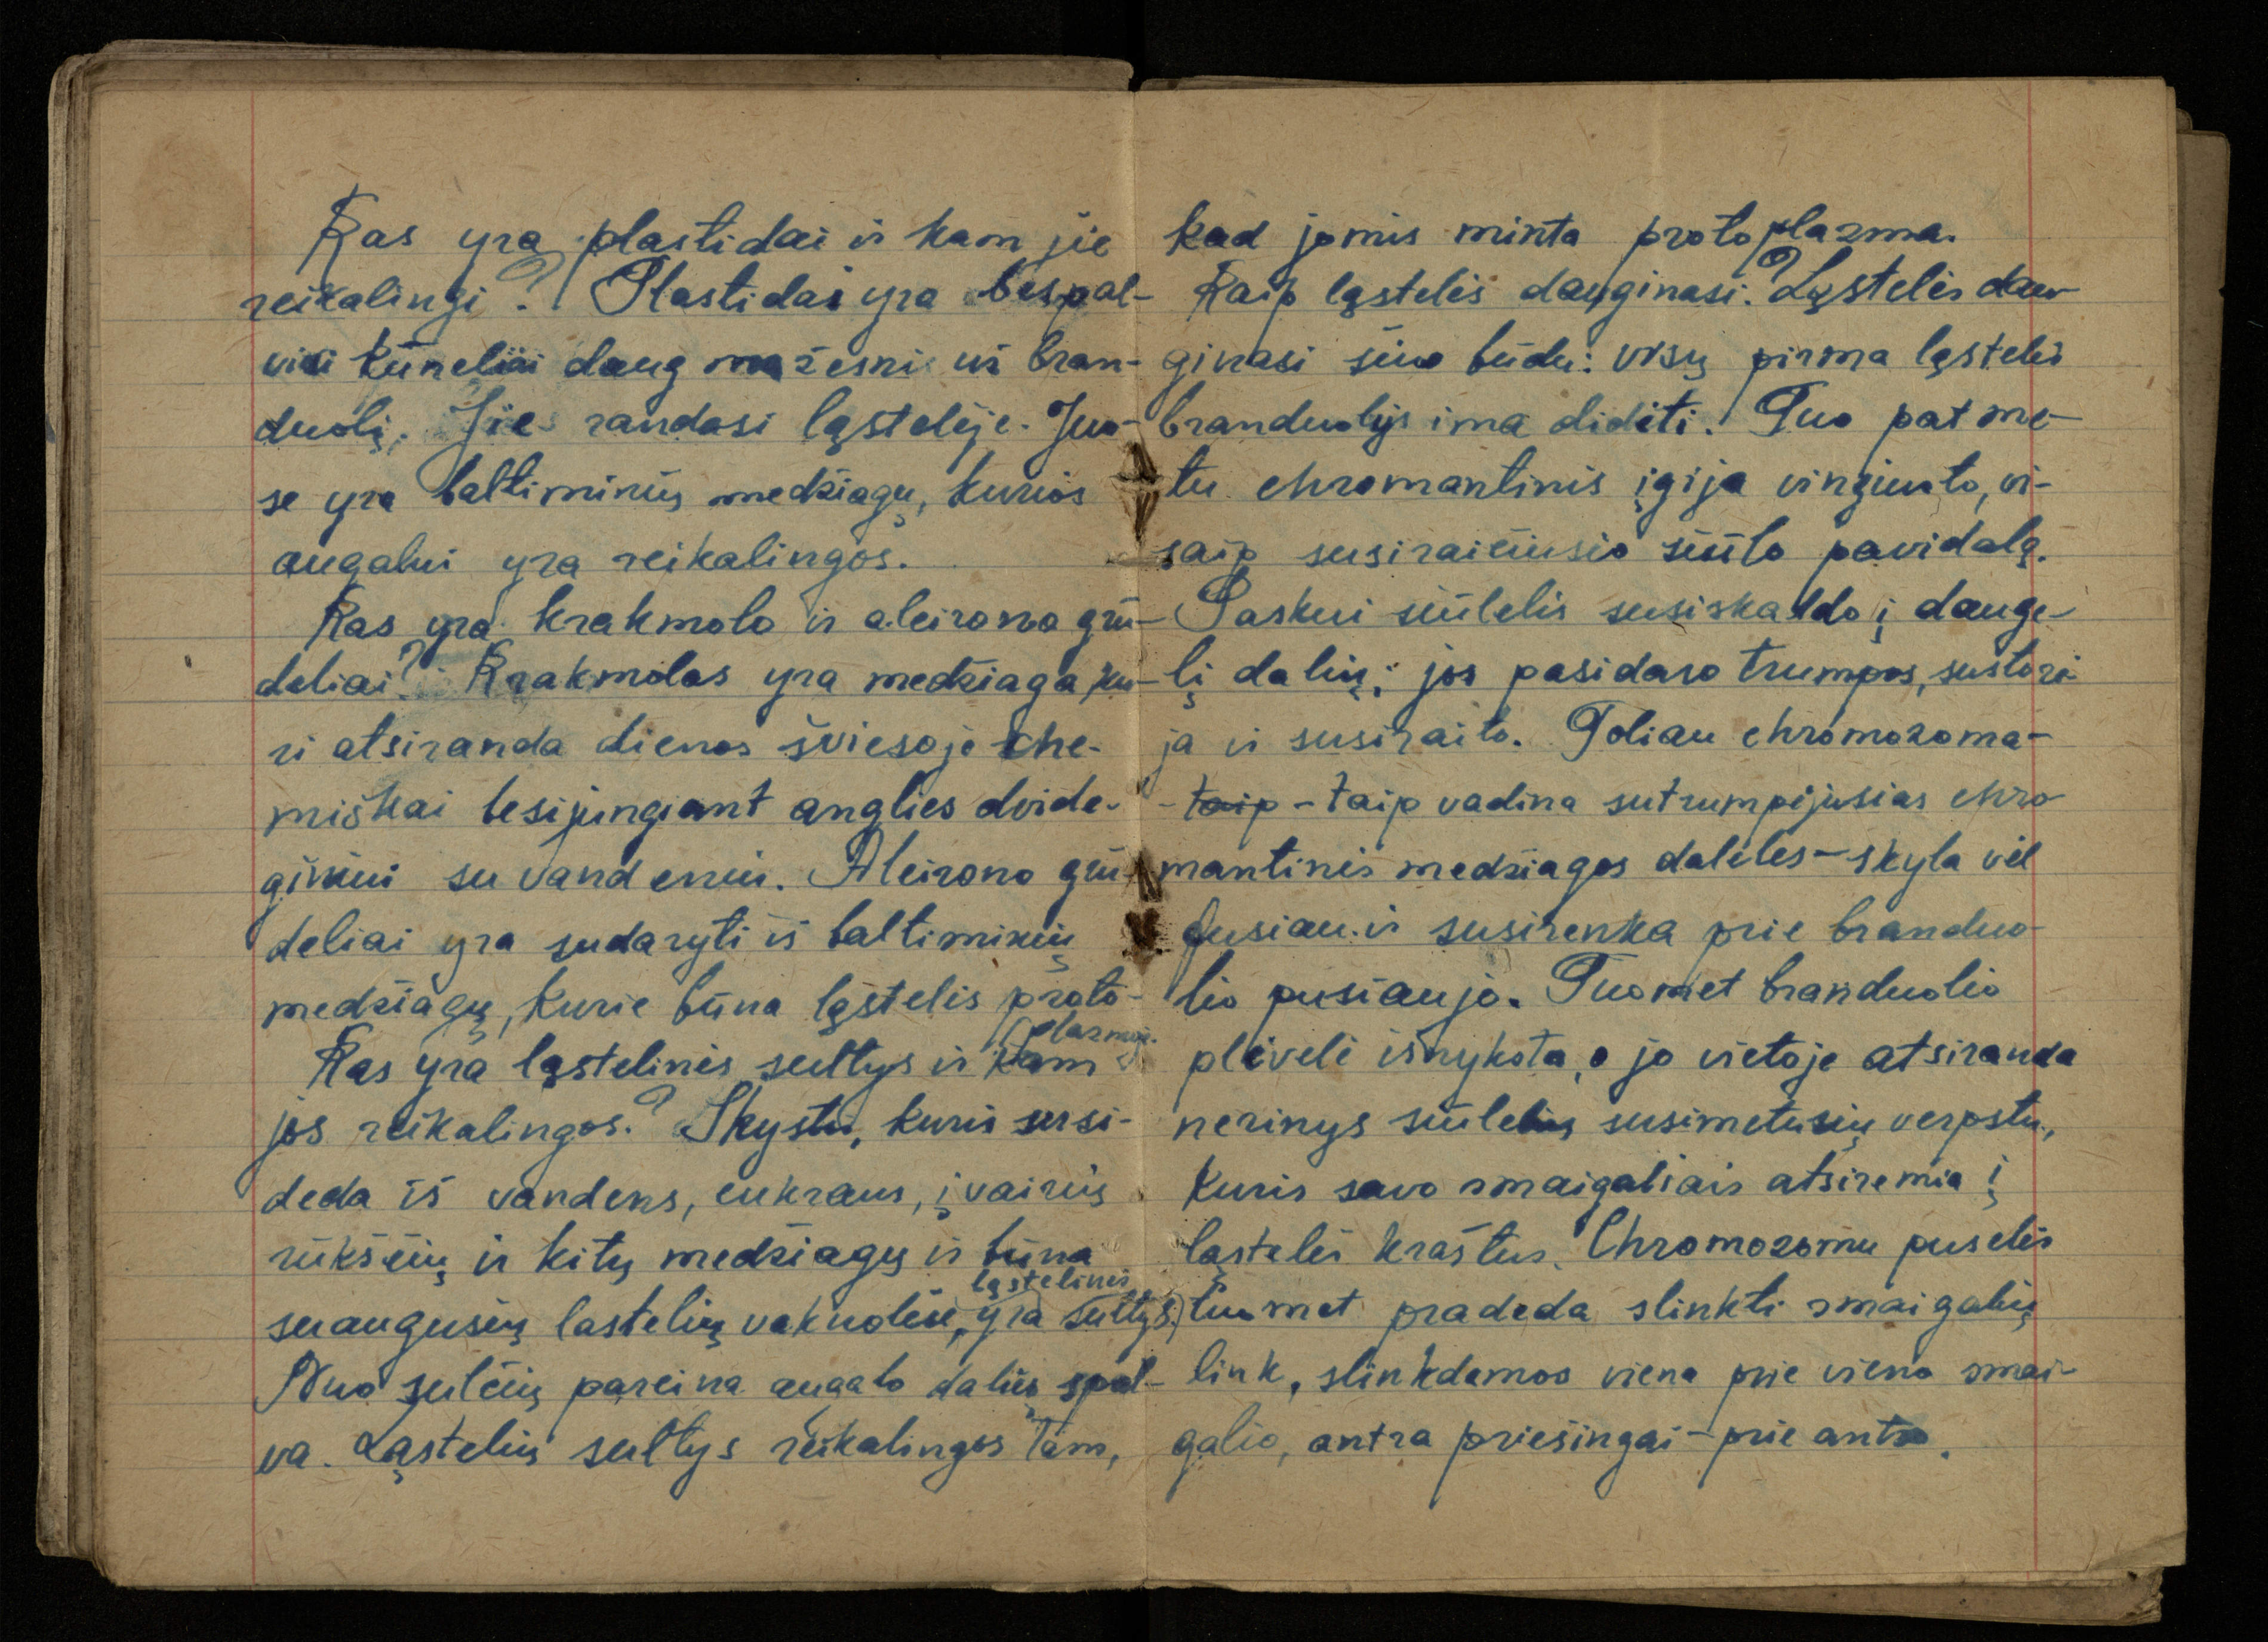 Kas yra plastidai ir kam jie
reikalingi? Plastidai yra bespal-
viai kūneliai daug mažesni už bran-
duolį. Jie randasi ląstelėje. Juo-
se yra baltiminių medžiagų, kurios
augalui yra reikalingos.
Kas yra krakmolo ir aleirono grū-
deliai? Krakmolas yra medžiaga ku-
ri atsiranda dienos šviesoje che-
miškai besijungiant anglies dvide-
giniui su vandeniu. Aleirono grū-
deliai yra sudaryti iš baltiminių
medžiagų, kurie būna ląstelės proto-
plazmoje.
Kas yra ląstelinės sultys ir kam
jos reikalingos? Skystis, kuris susi-
deda iš vandens, cukraus, įvairių
rūkščių ir kitų medžiagų ir būna
ląstelinės
suaugusių lastelių vakuolėse, yra sultys.
Nuo sulčių pareina augalo dalių spal-
va. Ląstelių sultys reikalingos tam,
kad jomis minta protoplazma.
Kaip ląstelės dauginasi? Ląstelės dau-
ginasi šiuo būdu: visų pirma ląstelės
branduolys ima didėti. Tuo pat me-
tu chromantinis įgija vingiuoto, vi-
saip susiraičiusio siūlo pavidalą.
Paskui siūlelis susiskaldo į dauge-
lį dalių; jos pasidaro trumpos, sustorė-
ja ir susiraito. Toliau chromozoma-
- taip - taip vadina sutrumpėjusias chro
mantinės medžiagos daleles - skyla vėl
pusiau ir susirenka prie branduo-
lio pusiaujo. Tuomet branduolio
plėvelė išnyksta, o jo vietoje atsiranda
nerinys siūlelių susimetusių verpstu,
kuris savo smaigaliais atsiremia į
ląstelės kraštus. Chromozomų puselės
tuomet pradeda slinkti smaigalių
link, slinkdamos viena prie vieno smai-
galio, antra priešingai - prie antro.